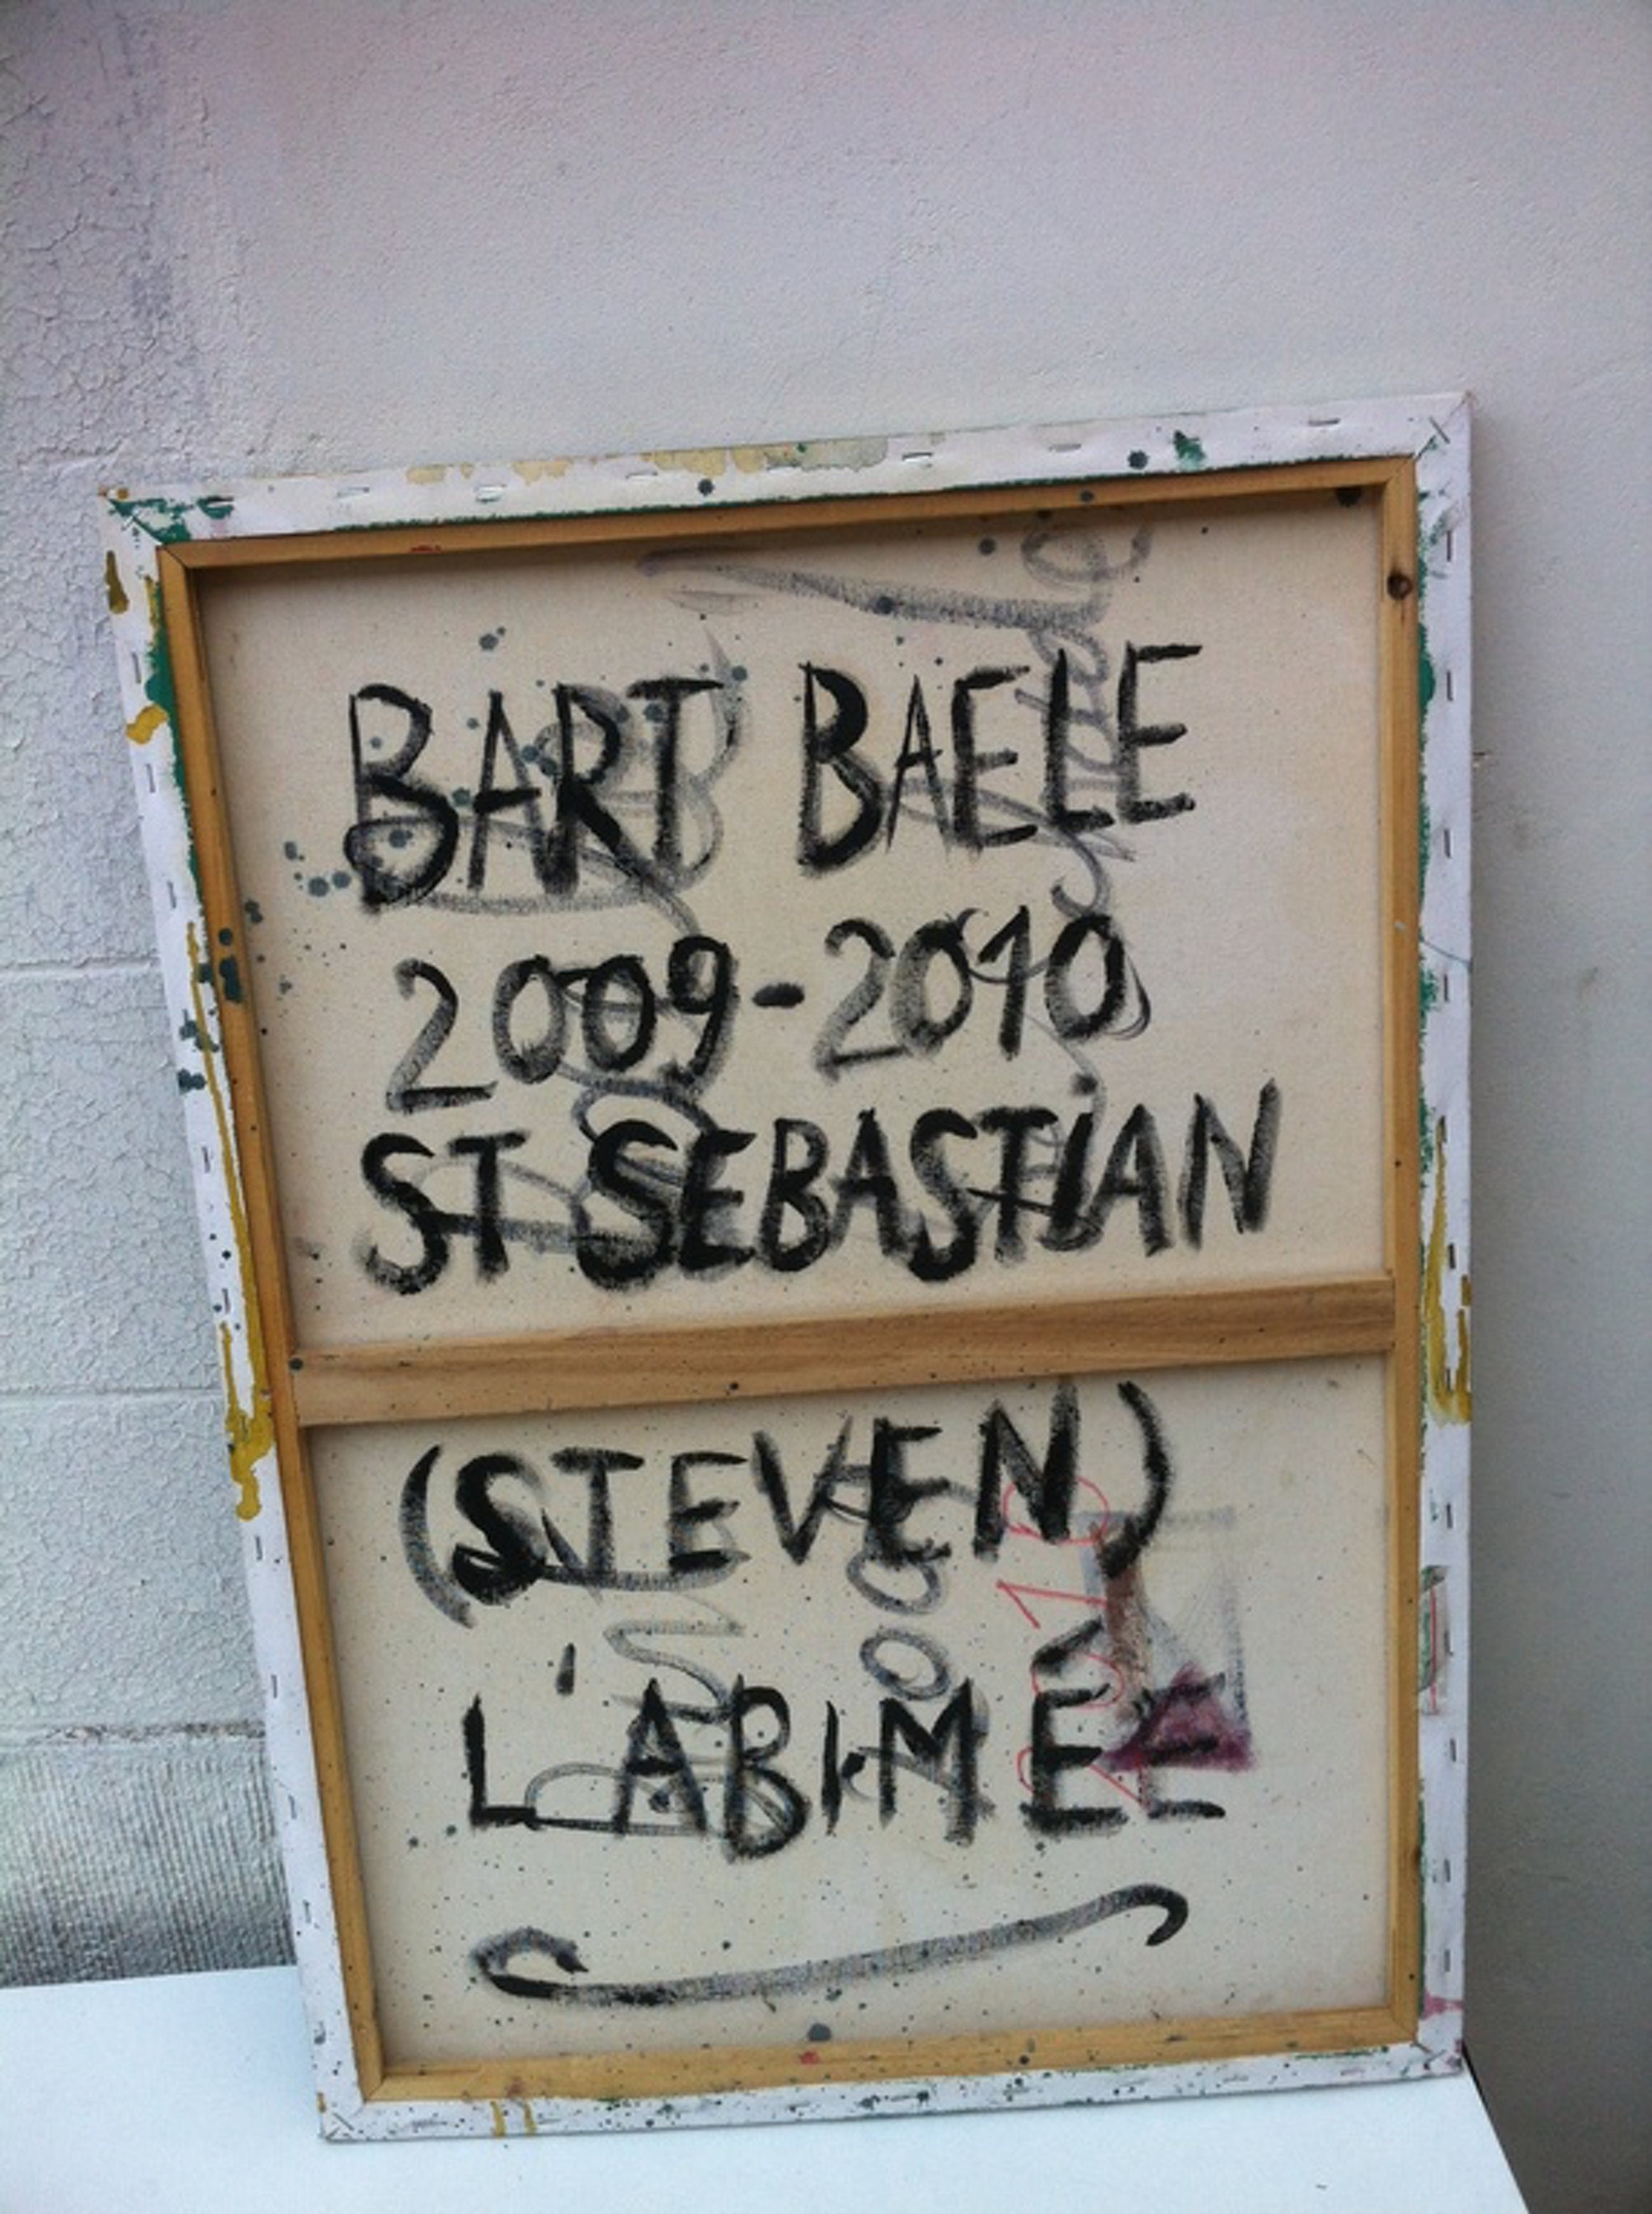 BART BAELE
2009-2010
ST SEBASTiAN
(STEVEN)
L'ABIMÉE
2010